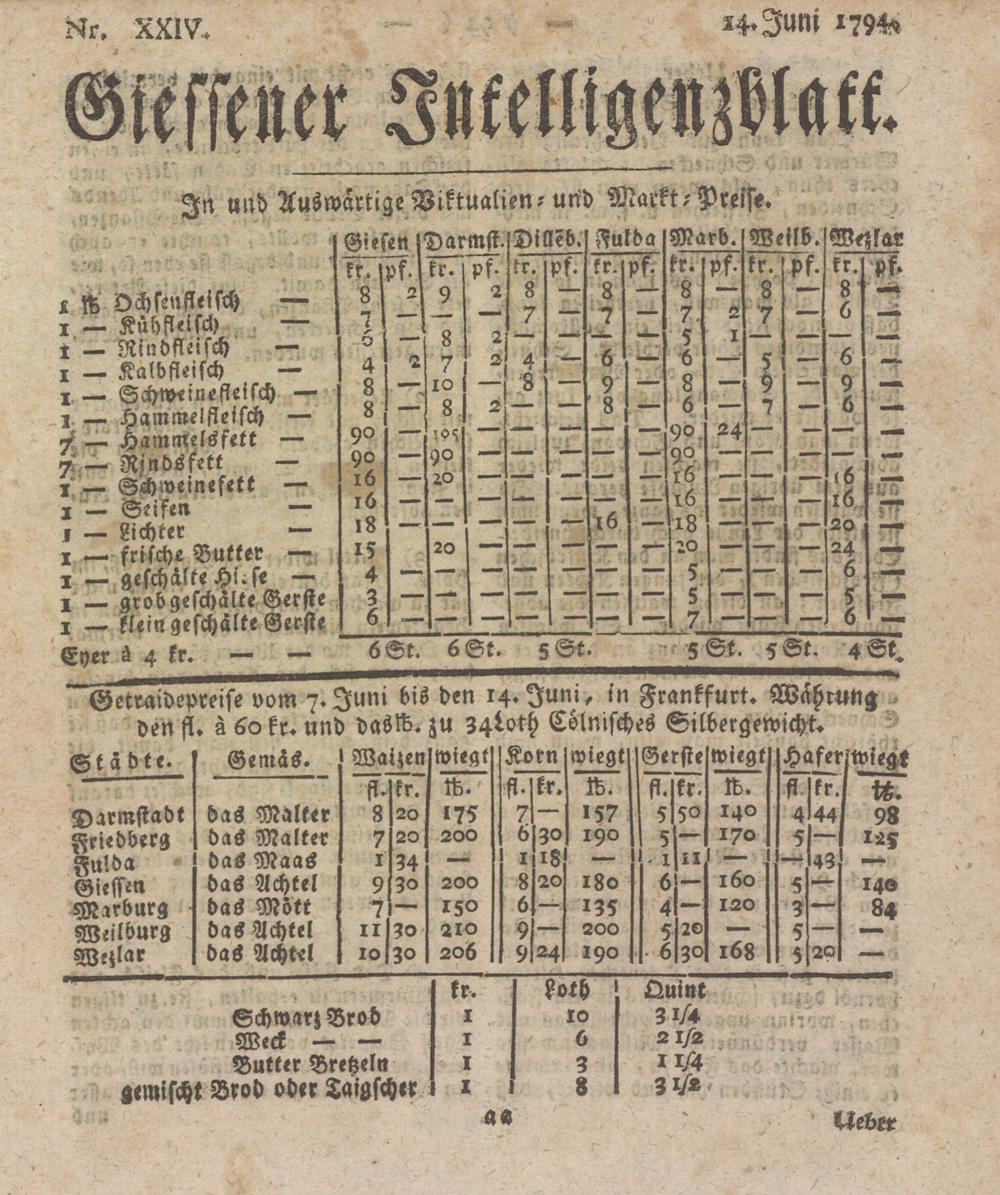 Nr. XXIV. 14. Juni 1794.
Giessener Intelligenzblatt.
In und Auswärtige Viktualien- und Markt-Preise.
Giesen Darmst. Dillēb. Fulda Marb. Weilb. Wezlar
kr. pf. kr. pf. kr. pf. kr. pf. kr. pf. kr. pf. kr. pf.
1 ℔ Ochsenfleisch — 8 2 9 2 8 — 8 — 8 — 8 — 8 —
1 — Kühfleisch — 7 — — — 7 — 7 — 7 2 7 — 6 —
1 — Rindfleisch — 6 — 8 2 — — — — 5 1 — — — —
1 — Kalbfleisch — 4 2 7 2 4 — 6 — 6 — 5 — 6 —
1 — Schweinefleisch — 8 — 10 — 8 — 9 — 8 — 9 — 9 —
1 — Hammelfleisch — 8 — 8 2 — — 8 — 6 — 7 — 6 —
7 — Hammelsfett — 90 — 105 — — — — — 90 24 — — — —
7 — Rindsfett — 90 — 90 — — — — — 90 — — — — —
1 — Schweinefett — 16 — 20 — — — — — 16 — — — 16 —
1 — Seifen — 16 — — — — — — — 16 — — — 16 —
1 — Lichter — 18 — — — — — 16 — 18 — — — 20 —
1 — frische Butter — 15 20 — — — — — 20 — — — 24 —
1 — geschälte — 4 — — — — — — — 5 — — — 6 —
1 — grob geschälte Gerste 3 — — — — — — — 5 — — — 5 —
1 — klein geschälte Gerste 6 — — — — — — — 7 — — — 6 —
Eyer à 4 kr. — — 6 St. 6 St. 5 St. 5 St. 5 St. 4 St.
Getraidepreise vom 7. Juni bis den 14. Juni, in Frankfurt. Währung
den fl. à 60 kr. und das ℔. zu 34 Loth Cölnisches Silbergewicht.
Städte. Gemäs. Waizen wiegt Korn wiegt Gerste wiegt Hafer wiegt
fl. kr. ℔. fl. kr. ℔. fl. kr. ℔. fl. kr. ℔.
Darmstadt das Malter 8 20 175 7 — 157 5 50 140 4 44 98
Friedberg das Malter 7 20 200 6 30 190 5 — 170 5 — 125
Fulda das Maas 1 34 — 1 18 — 1 11 — — 43 —
Giessen das Achtel 9 30 200 8 20 180 6 — 160 5 — 140
Marburg das Mött 7 — 150 6 — 135 4 — 120 3 — 84
Weilburg das Achtel 11 30 210 9 — 200 5 20 — 5 — —
Wezlar das Achtel 10 30 206 9 24 190 6 30 168 5 20 —
kr. Loth Quint
Schwarz Brod 1 10 3 1/4
Weck — — 1 6 2 1/2
Butter Bretzeln 1 3 1 1/4
gemischt Brod oder Taigscher 1 8 3 1/2
aa Ueber